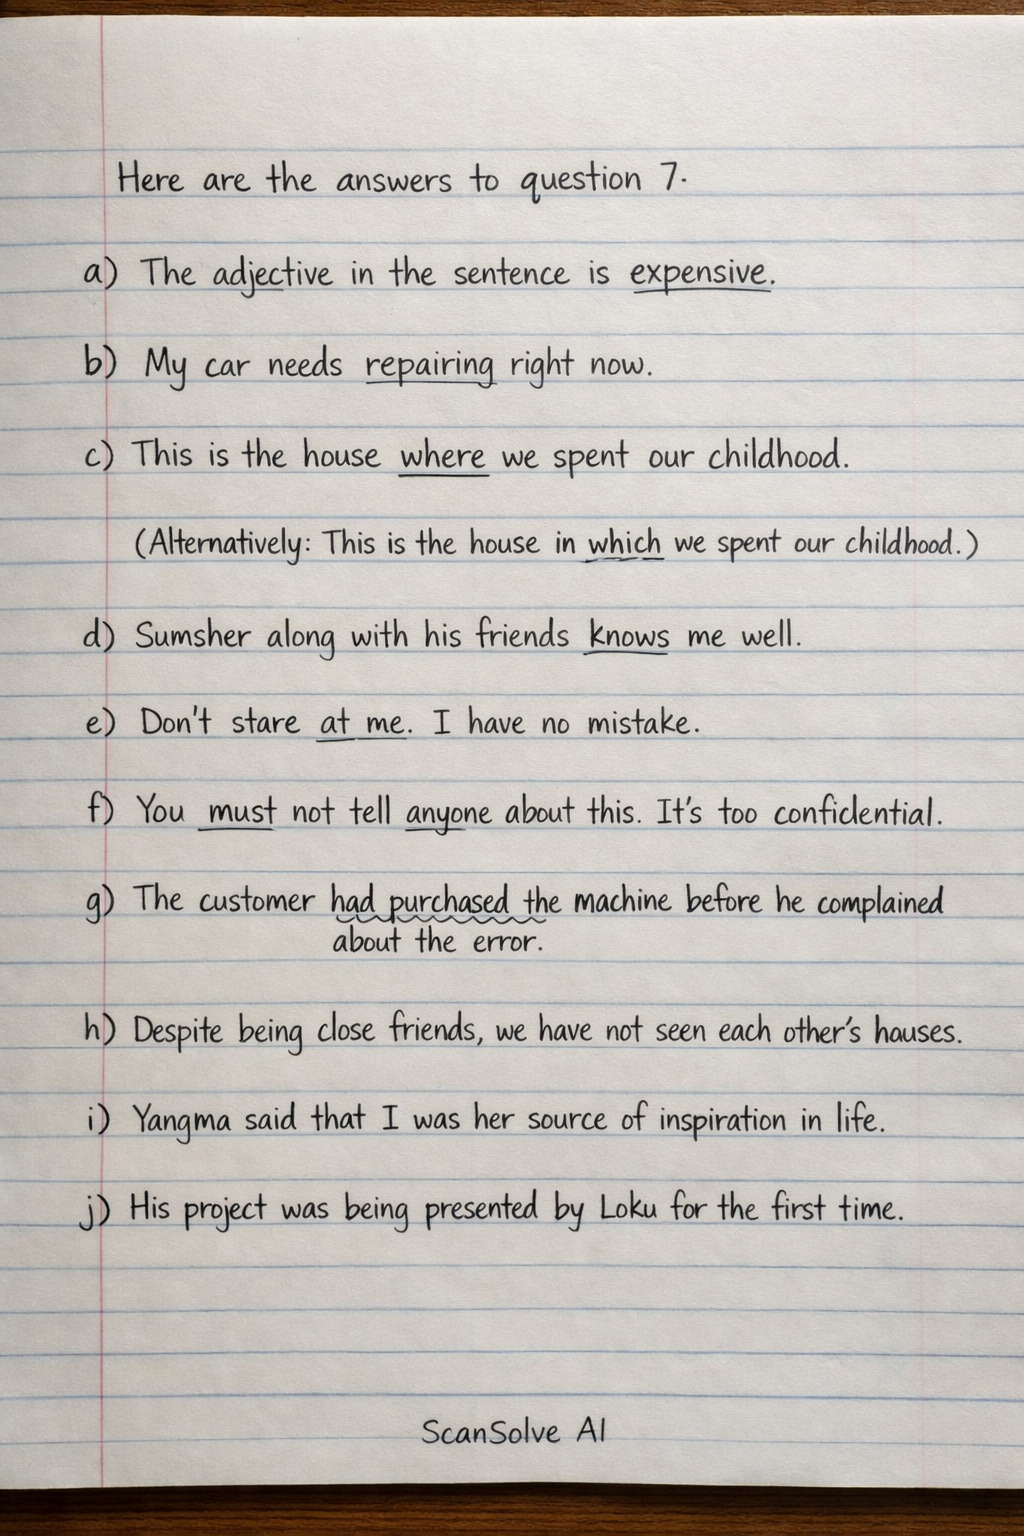 Here are the answers to question 7.
a) The adjective in the sentence is expensive.
b) My car needs repairing right now.
c) This is the house where we spent our childhood.
(Alternatively: This is the house in which we spent our childhood.)
d) Sumsher along with his friends knows me well.
e) Don't stare at me. I have no mistake.
f) You must not tell anyone about this. It's too confidential.
g) The customer had purchased the machine before he complained
about the error.
h) Despite being close friends, we have not seen each other's hauses.
i) Yangma said that I was her source of inspiration in life.
j) His project was being presented by Loku for the first time.
ScanSolve AI